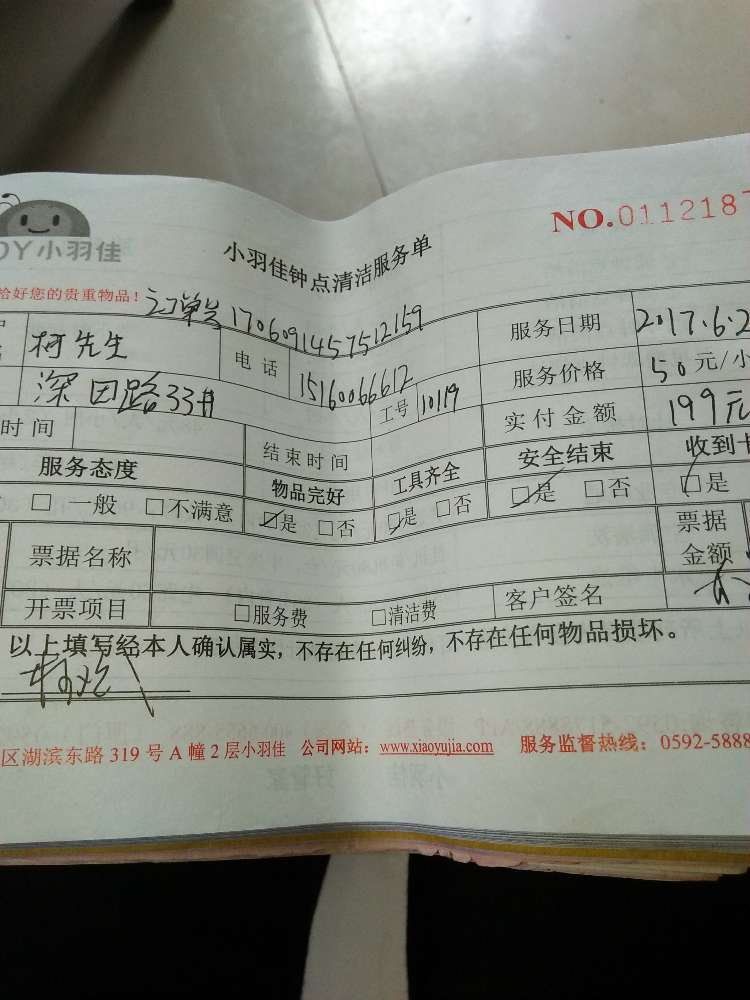 NO.0112187
DY小羽佳
小羽佳钟点清洁服务单
给好您的贵重物品！ 订单号 1706091457512159
柯先生 电话 15160066612 服务日期 2017.6.2
深田路33# 工号 10119 服务价格 50 元/小
时间 结束时间 实付金额 199元
服务态度 物品完好 工具齐全 安全结束 收到卡
□一般 □不满意 ☑是 □否 ☑是 □否 ☑是 □否 ☑是
票据名称 票据金额
开票项目 □服务费 □清洁费 客户签名
以上填写经本人确认属实，不存在任何纠纷，不存在任何物品损坏。
区湖滨东路 319 号 A 幢 2 层小羽佳 公司网站：www.xiaoyujia.com 服务监督热线：0592-5888